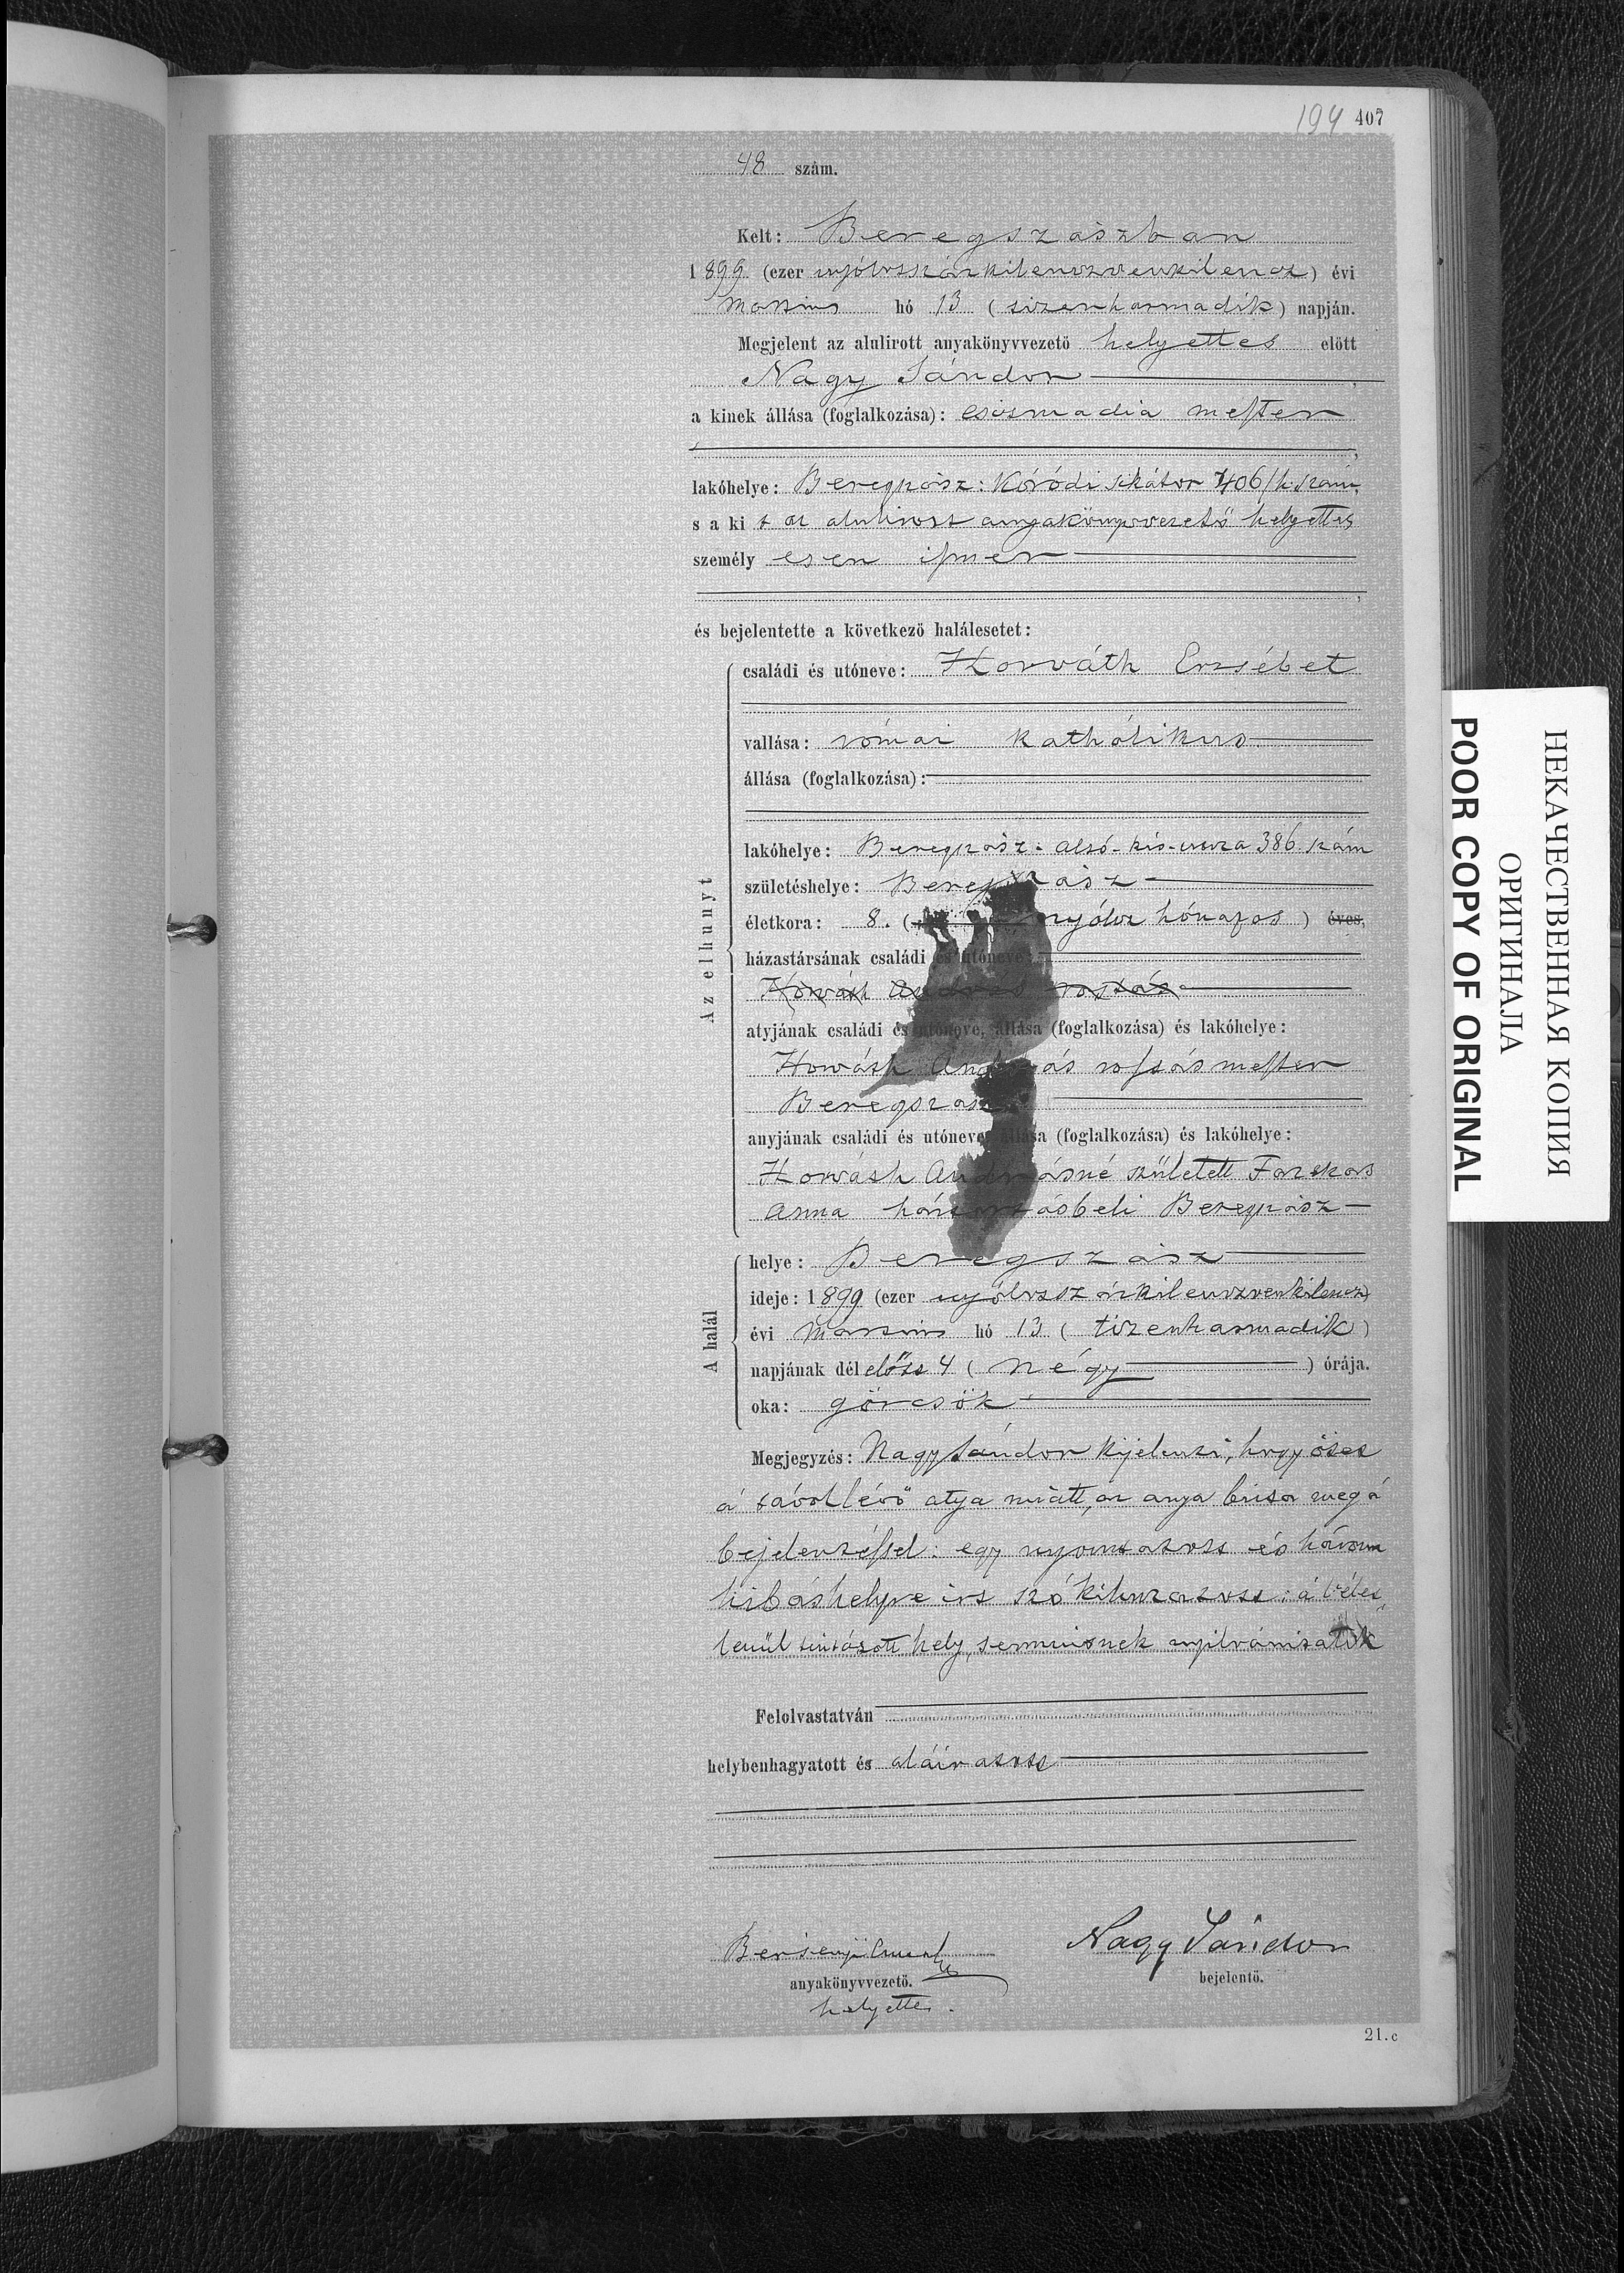 194 407
48 szám.
Kelt: Beregszászban
1899 (ezer nyólczszázkilenczvenkilencz) évi
Marczius hó 13 (tizenharmadik) napján.
Megjelent az alulirott anyakönyvvezető helyettes előtt
Nagy Sándor
a kinek állása (foglalkozása): csizmadia mester
lakóhelye: Beregszász: Kóródi sikátor 406/h. szám,
s a kit az alulirott anyakönyvvezető helyettes
személyesen ismer
és bejelentette a következő halálesetet:
Az elhunyt
családi és utóneve: Horváth Erzsébet
vallása: római kathólikus
állása (foglalkozása):
lakóhelye: Beregszász: alsó-kis-utcza 386 szám
születéshelye: Beregszász
életkora: 8. ( nyólcz hónapos ) éves,
házastársának családi és utóneve:
Horváth András rostás
atyjának családi és utóneve, állása (foglalkozása) és lakóhelye:
Horváth András rostás mester
Beregszász
anyjának családi és utóneve, állása (foglalkozása) és lakóhelye:
Horváth Andrásné született Farkas
Anna háztartásbeli Beregszász
A halál
helye: Beregszász
ideje: 1899 (ezer nyólczszázkilenczvenkilencz)
évi Marczius hó 13 (tizenharmadik)
napjának délelőtt 4 (négy) órája.
oka: görcsök
Megjegyzés: Nagy Sándor kijelenti, hogy őtet
a távollévő atya miatt, az anya bizta meg a
bejelentéssel: egy nyomtatott és három
hibás helyre irt szó kihuzatott; a vélet
lenül tintázott hely, semmisnek nyilvánitatik
Felolvastatván
helybenhagyatott és aláiratott
Nagy Sándor
anyakönyvvezető. bejelentő.
helyettes.
21.c
НЕКАЧЕСТВЕННАЯ КОПИЯ
ОРИГИНАЛА
POOR COPY OF ORIGINAL